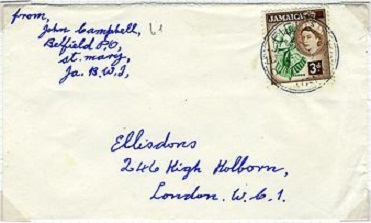 from,
John Campbell,
Belfield P.O,
St. mary,
Ja. B.W.I,
L1
JAMAICA
3d
Ellisdons
246 High Holborn,
London. W.C.1.